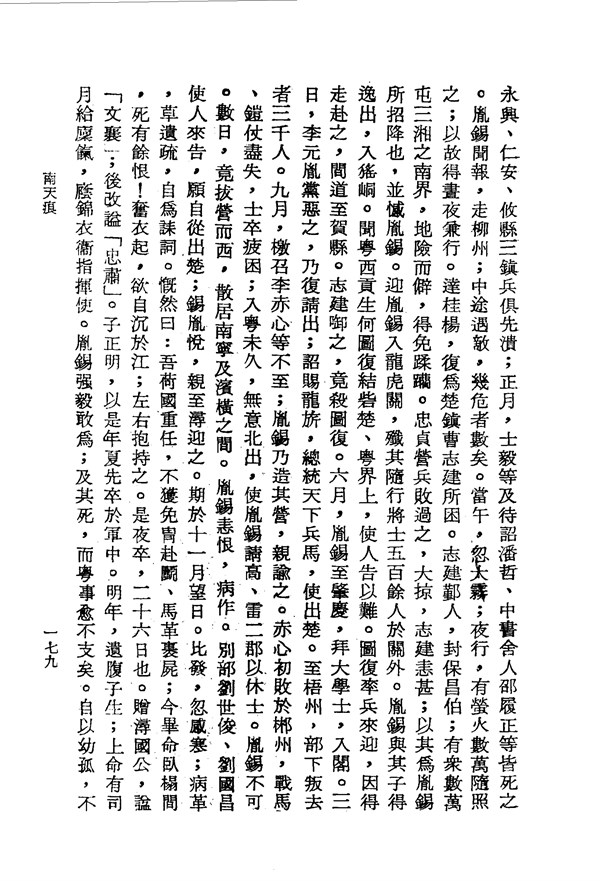 永興、仁安、攸縣三鎮兵俱先潰；正月，士毅等及待詔潘哲、中書舍人邵履正等皆死之
。胤錫聞報，走柳州；中途遇敵，幾危者數矣。當午，忽大霧；夜行，有螢火數萬隨照
之；以故得晝夜兼行。達桂楊，復爲楚鎮曹志建所困。志建鄞人，封保昌伯；有衆數萬
屯三湘之南界，地險而僻，得免蹂躪。忠貞營兵敗過之，大掠，志建恚甚；以其爲胤錫
所招降也，並憾胤錫。迎胤錫入龍虎關，殲其隨行將士五百餘人於關外。胤錫與其子得
逸出，入猺峒。聞粤西貢生何圖復結砦楚、粤界上，使人告以難。圖復率兵來迎，因得
走赴之，間道至賀縣。志建啣之，竟殺圖復。六月，胤錫至肇慶，拜大學士，入閣。三
日，李元胤黨惡之，乃復請出；詔賜龍旂，總統天下兵馬，使出楚。至梧州，部下叛去
者三千人。九月，檄召李赤心等不至；胤錫乃造其營，親諭之。赤心初敗於郴州，戰馬
、鎧仗盡失，士卒疲困；入粤未久，無意北出，使胤錫請高、雷二郡以休士。胤錫不可
。數日，竟拔營而西，散居南寧及濱橫之間。胤錫恚恨，病作。別部劉世俊、劉國昌
使人來告，願自從出楚；錫胤悅，親至潯迎之。期於十一月望日。比發，忽感寒；病革
，草遺疏，自爲誄詞。慨然曰：吾荷國重任，不獲免冑赴鬭、馬革裹屍；今畢命臥榻間
，死有餘恨！奮衣起，欲自沉於江；左右抱持之。是夜卒，二十六日也。贈潯國公，諡
「文襄」；後改諡「忠肅」。子正明，以是年夏先卒於軍中。明年，遺腹子生；上命有司
月給廩餼，廕錦衣衞指揮使。胤錫强毅敢爲；及其死，而粤事愈不支矣。自以幼孤，不
南天痕
一七九